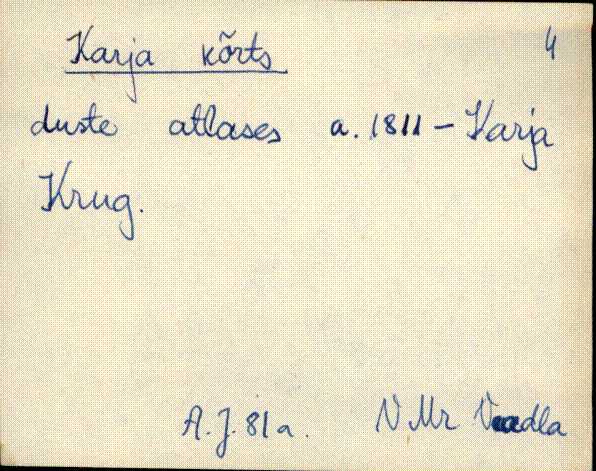 Karja kõrts 4
duste atlases a. 1811 - Karja
Krug.
A. J. 81 a. V Mr Vaadla